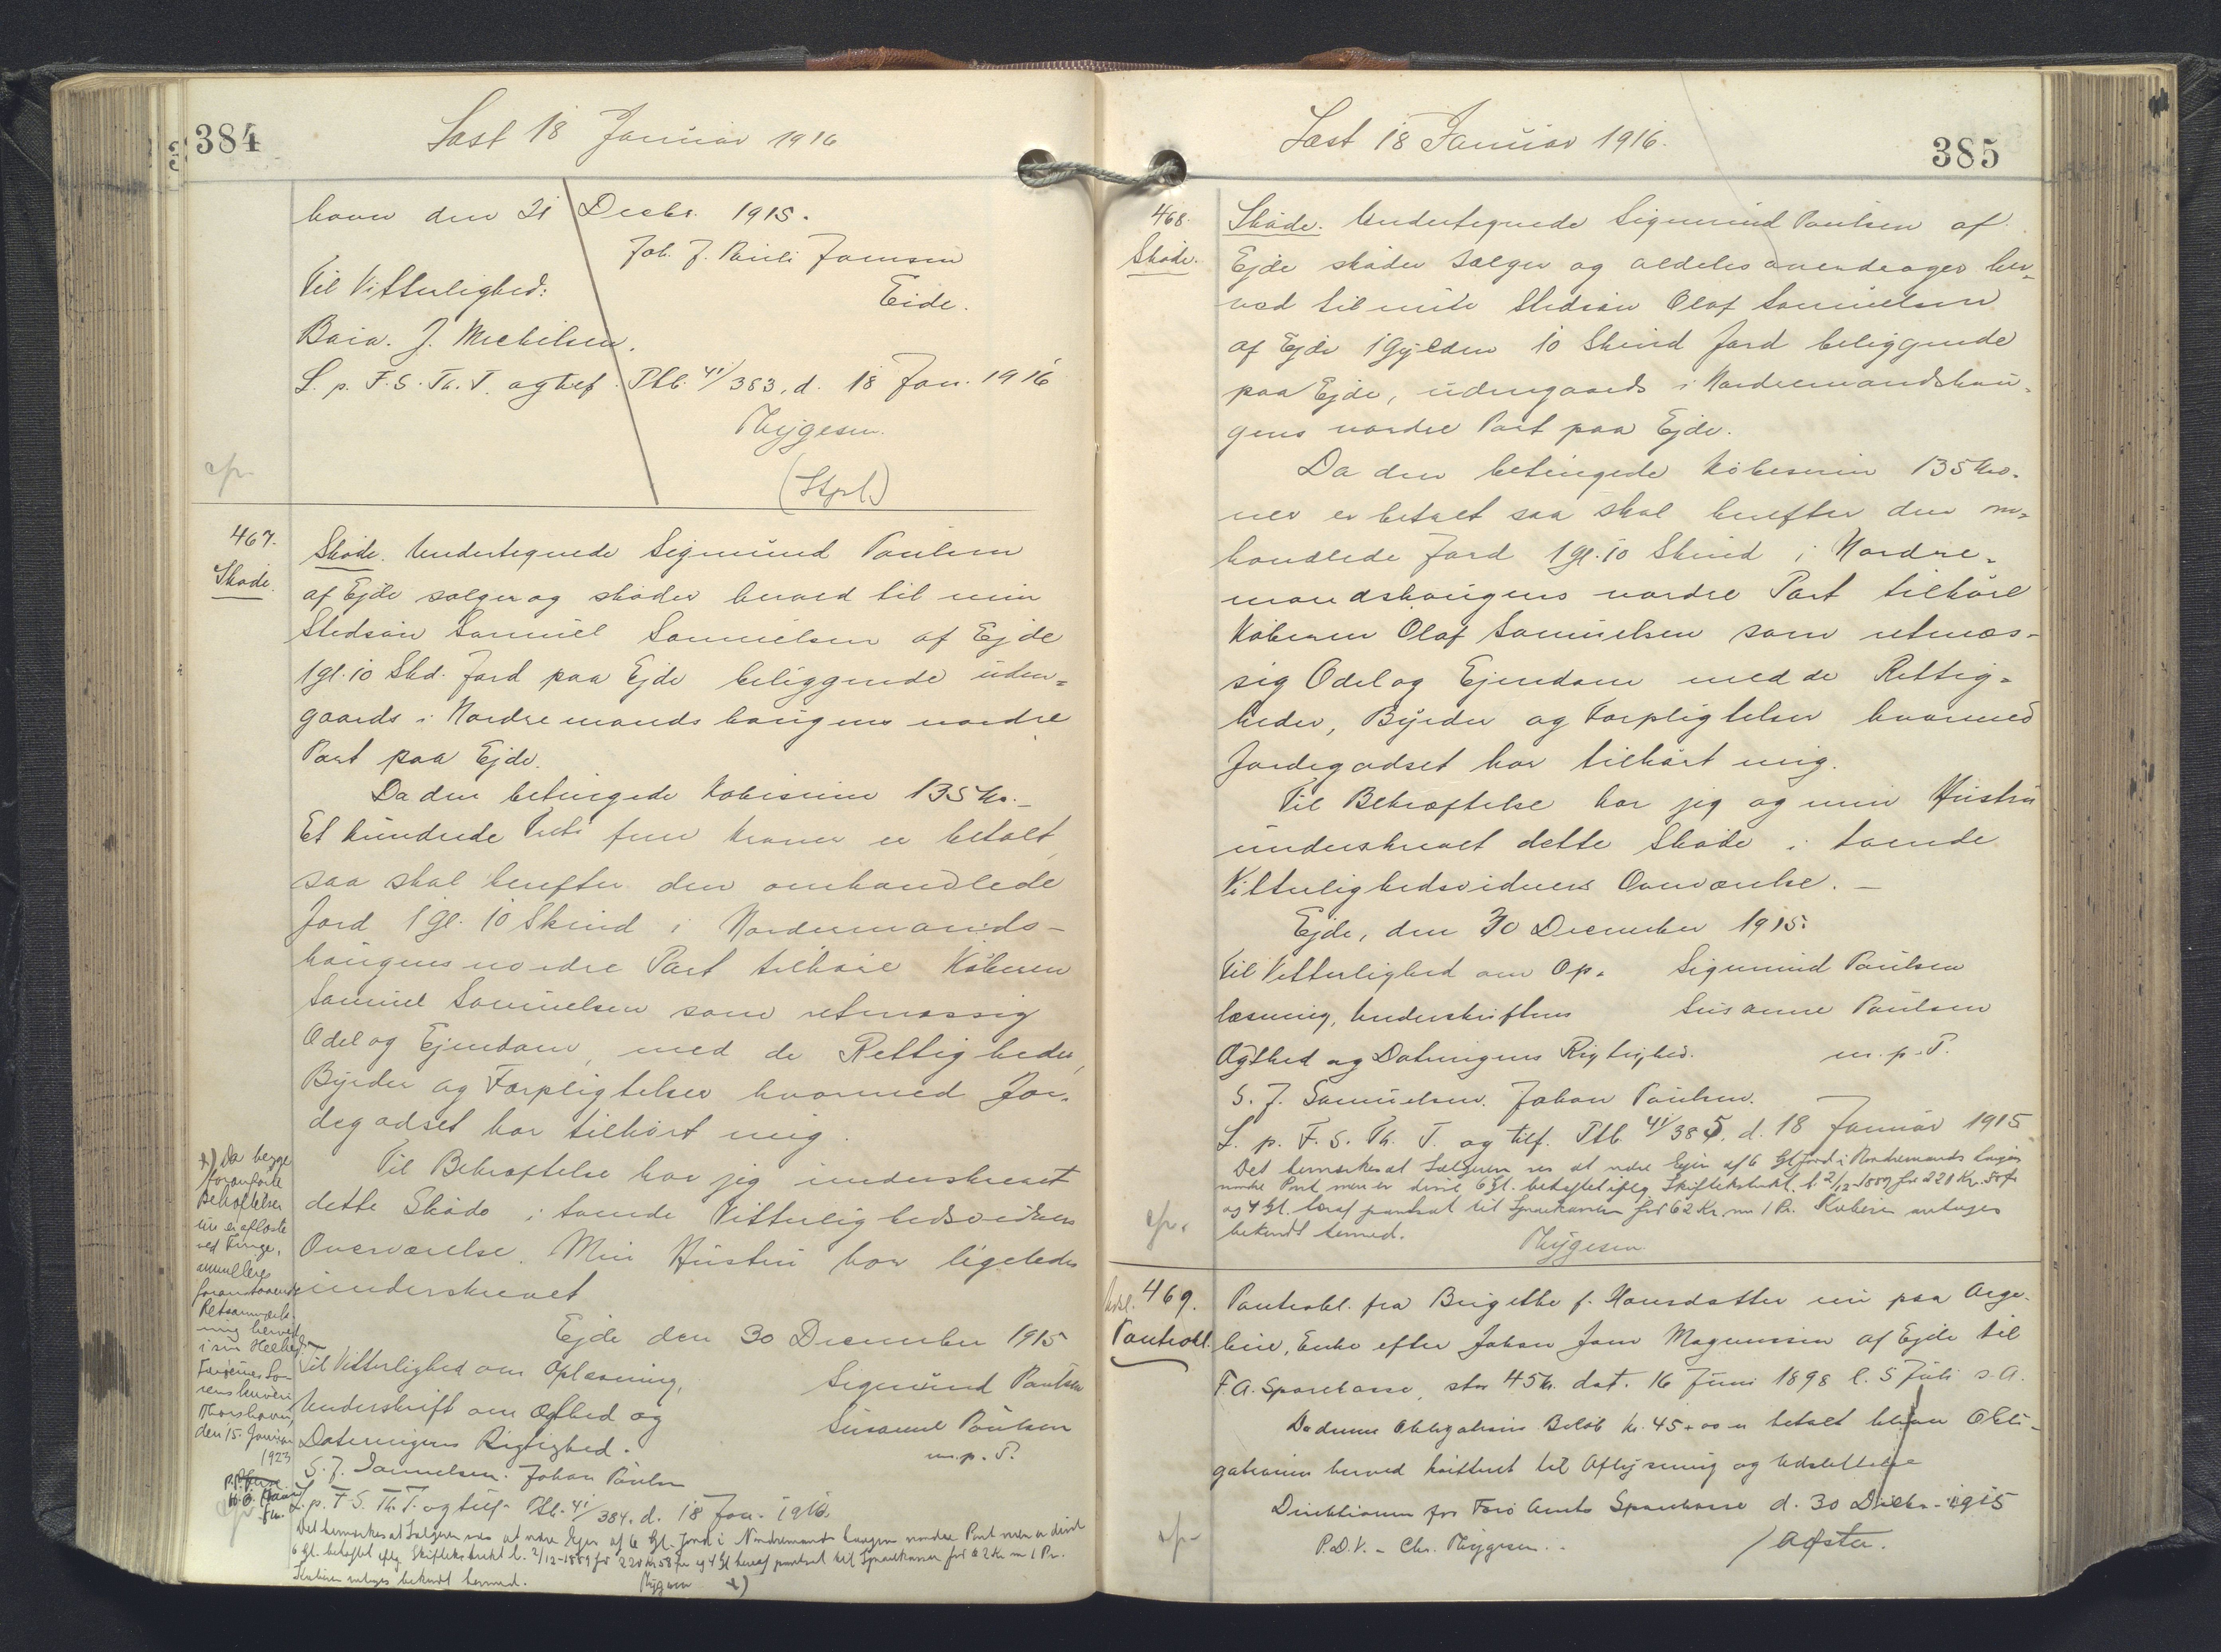 384
Læst 18 Januar 1916
havn den 21 Decbr. 1915.
Joh. J. Pauli Joensen
Til Vitterlighed:
Eide.
J. Michelsen.
L. p. F. S. Th. T. og tilf. Ptb. 41/383, d. 18 Jan. 1916
Thygesen.
(Stpl.)
cfr.
467.
Skøde.
Skøde. Undertegnede Sigmund Poulsen
af Ejde sælger og skøder herved til min
Stedsøn Samuel Samuelsen af Ejde
1 gl. 10 Skd. Jord paa Ejde beliggende uden=
gaards i Nordremandshaugens nordre
Part paa Ejde.
Da den betingede Købesum 135 Kr. –
Et hundrede Treti fem Kroner er betalt,
saa skal herefter den omhandlede
Jord 1 gl. 10 Skind i Nordremands-
haugens nordre Part tilhøre Køberen
Samuel Samuelsen som retmæssig
Odel og Ejendom, med de Rettigheder,
Byrder og Forpligtelser hvormed Jor-
degodset har tilhørt mig.
Til Bekræftelse har jeg underskrevet
dette Skøde i tvende Vitterlighedsvidners
Overværelse. Min Hustru har ligeledes
underskrevet
Ejde den 30 December 1915
Til Vitterlighed om Oplæsning,
Sigmund Poulsen
Underskrift om Ægthed og
Susanne Poulsen
Dateringens Rigtighed.
m. p. P.
S. J. Samuelsen. Johan Poulsen
L. p. F. S. Th. T. og tilf. Ptb. 41/384. d. 18 Jan. 1916.
Det bemærkes at Sælgeren ses at være Ejer af 6 Gl. Jord i Nordremands haugen nordre Part men er disse
6 Gl. behæftet iflg. Skifteekstrakt l. 2/12-1889 for 220 Kr 58 Øre og 4 Gl. heraf pantsat til Sparekassen for 62 Kr. m 1 Pr.
Køberen antages bekendt hermed.
Thygesen x)
x) Da begge
foranførte
Behæftelser
nu er afløste
ved Tinge,
annulleres
foranstaaende
Retsanmærk-
ning herved
i sin Helhed.
Færøernes So-
renskriveri
Thorshavn,
den 15. Januar
1923
385
Læst 18 Januar 1916.
468.
Skøde.
Skøde. Undertegnede Sigmund Poulsen af
Ejde skøder sælger og aldeles overdrager her-
ved til min Stedsøn Olaf Samuelsen
af Ejde 1 Gylden 10 Skind Jord beliggende
paa Ejde, udengaards i Nordremandshau-
gens nordre Part paa Ejde.
Da den betingede Købesum 135 Kro-
ner er betalt saa skal herefter den om-
handlede Jord 1 gl. 10 Skind i Nordre-
mandshaugens nordre Part tilhøre
Køberen Olaf Samuelsen som retmæs-
sig Odel og Ejendom med de Rettig-
heder, Byrder og Forpligtelser hvormed
Jordegodset har tilhørt mig.
Til Bekræftelse har jeg og min Hustru
underskrevet dette Skøde i tvende
Vitterlighedsvidners Overværelse. –
Ejde, den 30 December 1915.
Til Vitterlighed om Op- Sigmund Poulsen
læsning, Underskriftens Susanne Poulsen
Ægthed og Dateringens Rigtighed. m. p. P.
S. J. Samuelsen. Johan Poulsen.
L. p. F. S. Th. T. og tilf. Ptb. 41/385, d. 18 Januar 1915
Det bemærkes at Sælgeren ses at være Ejer af 6 Gl Jord i Nordremands haugens
nordre Part men er disse 6 Gl. behæftet iflg. Skifteekstrakt l. 2/12-1889 for 220 Kr. 58 Øre
og 4 Gl. heraf pantsat til Sparekassen for 62 Kr. m 1 Pr. Køberen antages
bekendt hermed. Thygesen
cfr.
Udsl. 469.
Panteobl.
Panteobl. fra Birgitte f. Hansdatter nu paa Arge-
Enke efter Johan Joen Magnussen af Ejde til
F. A. Sparekasse, stor 45 Kr. dat. 16 Juni 1898 l. 5 Juli s. A.
Da denne Obligations Beløb Kr. 45,00 er betalt bliver Obli-
gationen herved kvitteret til Aflysning og Udslettelse
Direktionen for Færø Amts Sparekasse d. 30 Decbr. 1915
P.D.V. – Chr. Thygesen. . / Aasster.
cfr.